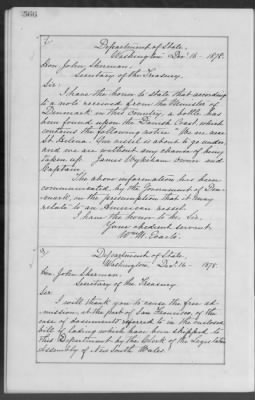 566
Department of State,
Washington Dec. 16 - 1878.
Hon John Sherman,
Secretary of the Treasury.
Sir:
I have the honor to state that according
to a note received from the Minister of
Denmark in this Country, a bottle has
been found upon the Danish Coast which
contains the following notice "We are near
St. Helena. Our vessel is about to go under
and we are without any chance of being
taken up. James Owner and
Captain.
The above information has been
communicated by the Government of Den-
mark, in the presumption that it may
relate to an American vessel.
I have the honor to be, Sir,
Your obedient servant
Wm M. Evarts.
Department of State,
Washington, Dec. 16 - 1878.
Hon. John Sherman.
Secretary of the Treasury.
Sir
I will thank you to cause the free ad-
mission, at the port of San Francisco, of the
case of documents referred to in the enclosed
bill of lading which have been shipped to
this Department by the Clerk of the Legislative
Assembly of New South Wales.